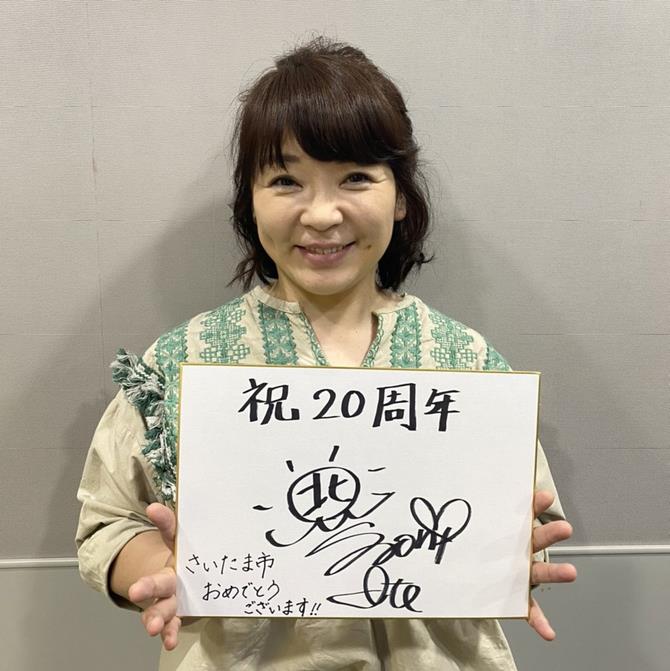 祝20周年
さいたま市
おめでとう
ございます!!